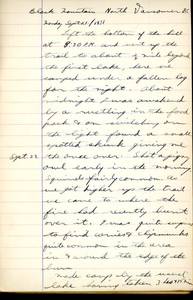 Black Mountain North Vancouver BC.
Sunday Sept 21/1931
Left the bottom of the hill
at 8:30 A.M. and went up the
trail to about ¼ mile beyond
the first lake. Here we
camped under a fallen log
for the night. About
midnight I was awakened
by a rustling in the food
pack & on switching on
the light found a small
spotted skunk giving me
Sept. 22 the once over. Shot a pigmy
owl early in the morning
sounds fairly common. As
we got higher up the trail
we came to where the
fire had recently burnt
over it. I was quite surp
to find conies & chipmunks
quite common in the area
in & around the edge of the
burn
Made camp by the usual
lake having taken 2 hours